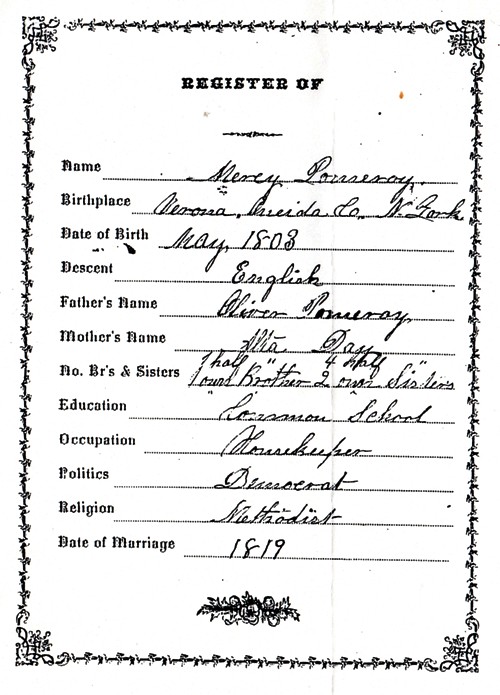 REGISTER OF
Name Mercy Pomeroy.
Birthplace Verona, Oneida Co. N. York
Date of Birth May, 1803
Descent English
Father's Name Oliver Pomeroy,
Mother's Name Day
1 half " 4 half "
No. Br's & Sisters 1 own Brother 2 own Sisters
Education Common School
Occupation Housekeeper
Politics Democrat
Religion Methodist
Date of Marriage 1819